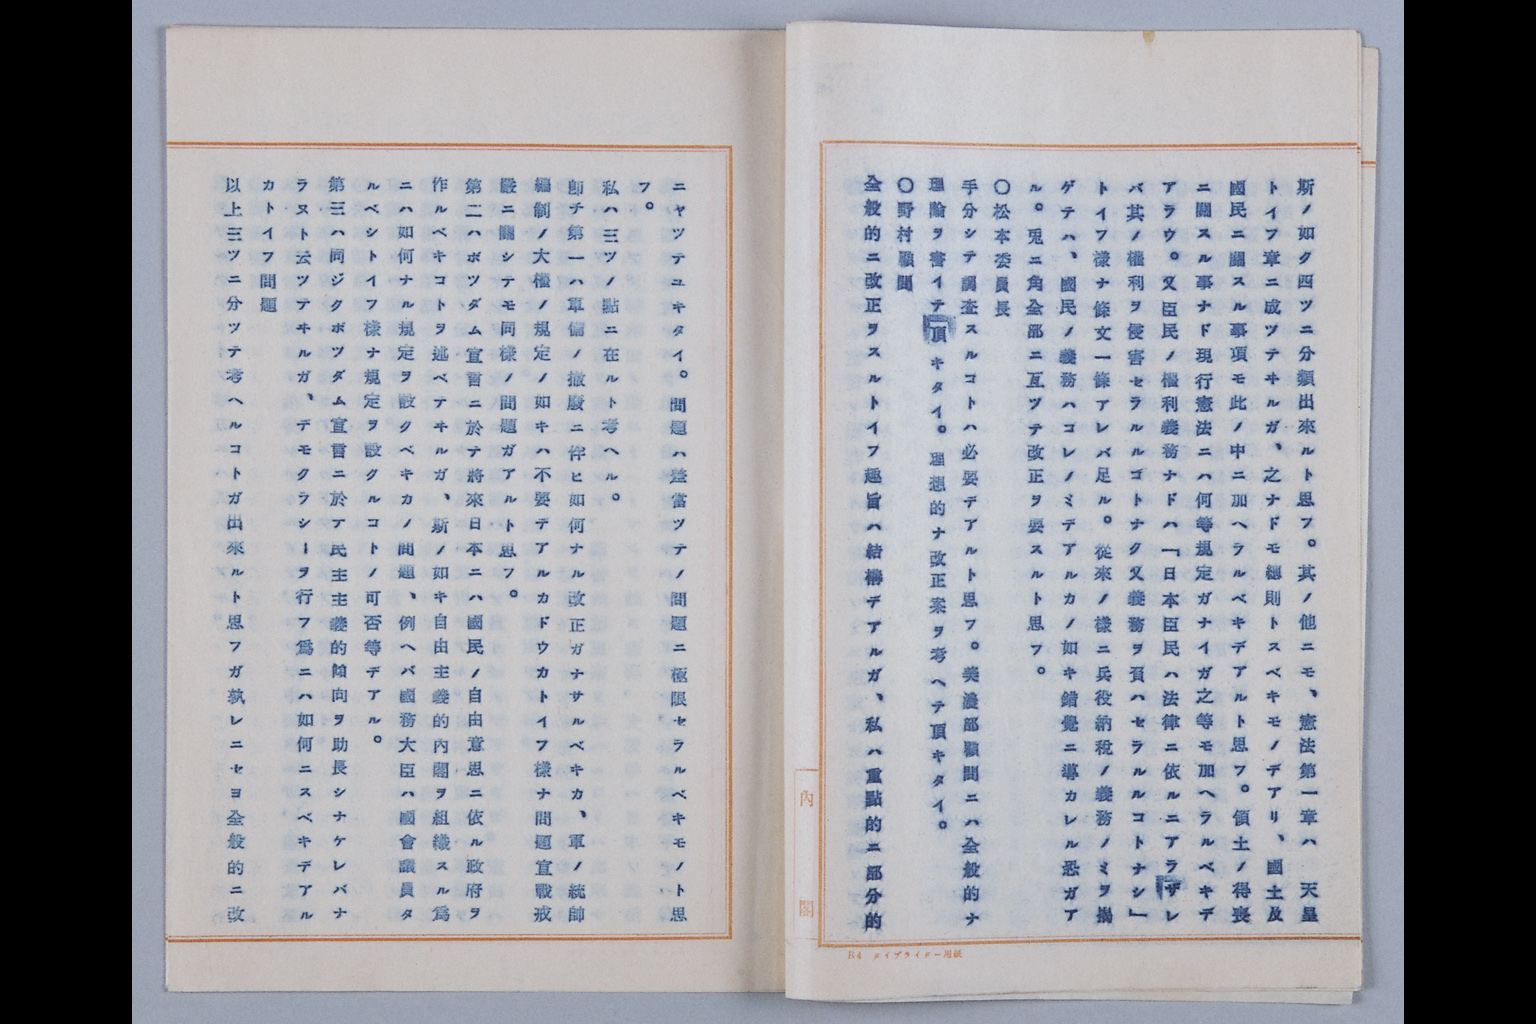 斯ノ如ク四ツニ分類出來ルト思フ。其ノ他ニモ、憲法第一章ハ 天皇
トイフ章ニ成ツテヰルガ、之ナドモ總則トスベキモノデアリ、國土及
國民ニ關スル事項モ此ノ中ニ加ヘラルベキデアルト思フ。領土ノ得喪
ニ關スル事ナド現行憲法ニハ何等規定ガナイガ之等モ加ヘラルベキデ
アラウ。又臣民ノ權利義務ナドハ「日本臣民ハ法律ニ依ルニアラザレ
バ其ノ權利ヲ侵害セラルルゴトナク又義務ヲ負ハセラルルコトナシ」
トイフ樣ナ條文一條アレバ足ル。從來ノ樣ニ兵役納税ノ義務ノミヲ揭
ゲテハ、國民ノ義務ハコレノミデアルカノ如キ錯覺ニ導カレル恐ガア
ル。兎ニ角全部ニ亙ツテ改正ヲ要スルト思フ。
〇松本委員長
手分シテ調査スルコトハ必要デアルト思フ。美濃部顧問ニハ全般的ナ
理論ヲ書イテ頂キタイ。理想的ナ改正案ヲ考ヘテ頂キタイ。
〇野村顧問
全般的ニ改正ヲスルトイフ趣旨ハ結構デアルガ、私ハ重點的ニ部分的
内閣
B4 タイプライター用紙
ニヤツテユキタイ。問題ハ差當ツテノ問題ニ極限セラルベキモノト思
フ。
私ハ三ツノ點ニ在ルト考ヘル。
卽チ第一ハ軍備ノ撤廢ニ伴ヒ如何ナル改正ガナサルベキカ、軍ノ統帥
編制ノ大權ノ規定ノ如キハ不要デアルカドウカトイフ樣ナ問題宣戰戒
嚴ニ關シテモ同樣ノ問題ガアルト思フ。
第二ハポツダム宣言ニ於テ將來日本ニハ國民ノ自由意思ニ依ル政府ヲ
作ルベキコトヲ述ベテヰルガ、斯ノ如キ自由主義的內閣ヲ組織スル爲
ニハ如何ナル規定ヲ設クベキカノ問題、例ヘバ國務大臣ハ國會議員タ
ルベシトイフ樣ナ規定ヲ設クルコトノ可否等デアル。
第三ハ同ジクポツダム宣言ニ於ア民主主義的傾向ヲ助長シナケレバナ
ラヌト云ツテヰルガ、デモクラシーヲ行フ爲ニハ如何ニスベキデアル
カトイフ問題
以上三ツニ分ツテ考ヘルコトガ出來ルト思フガ孰レニセヨ全般的ニ改